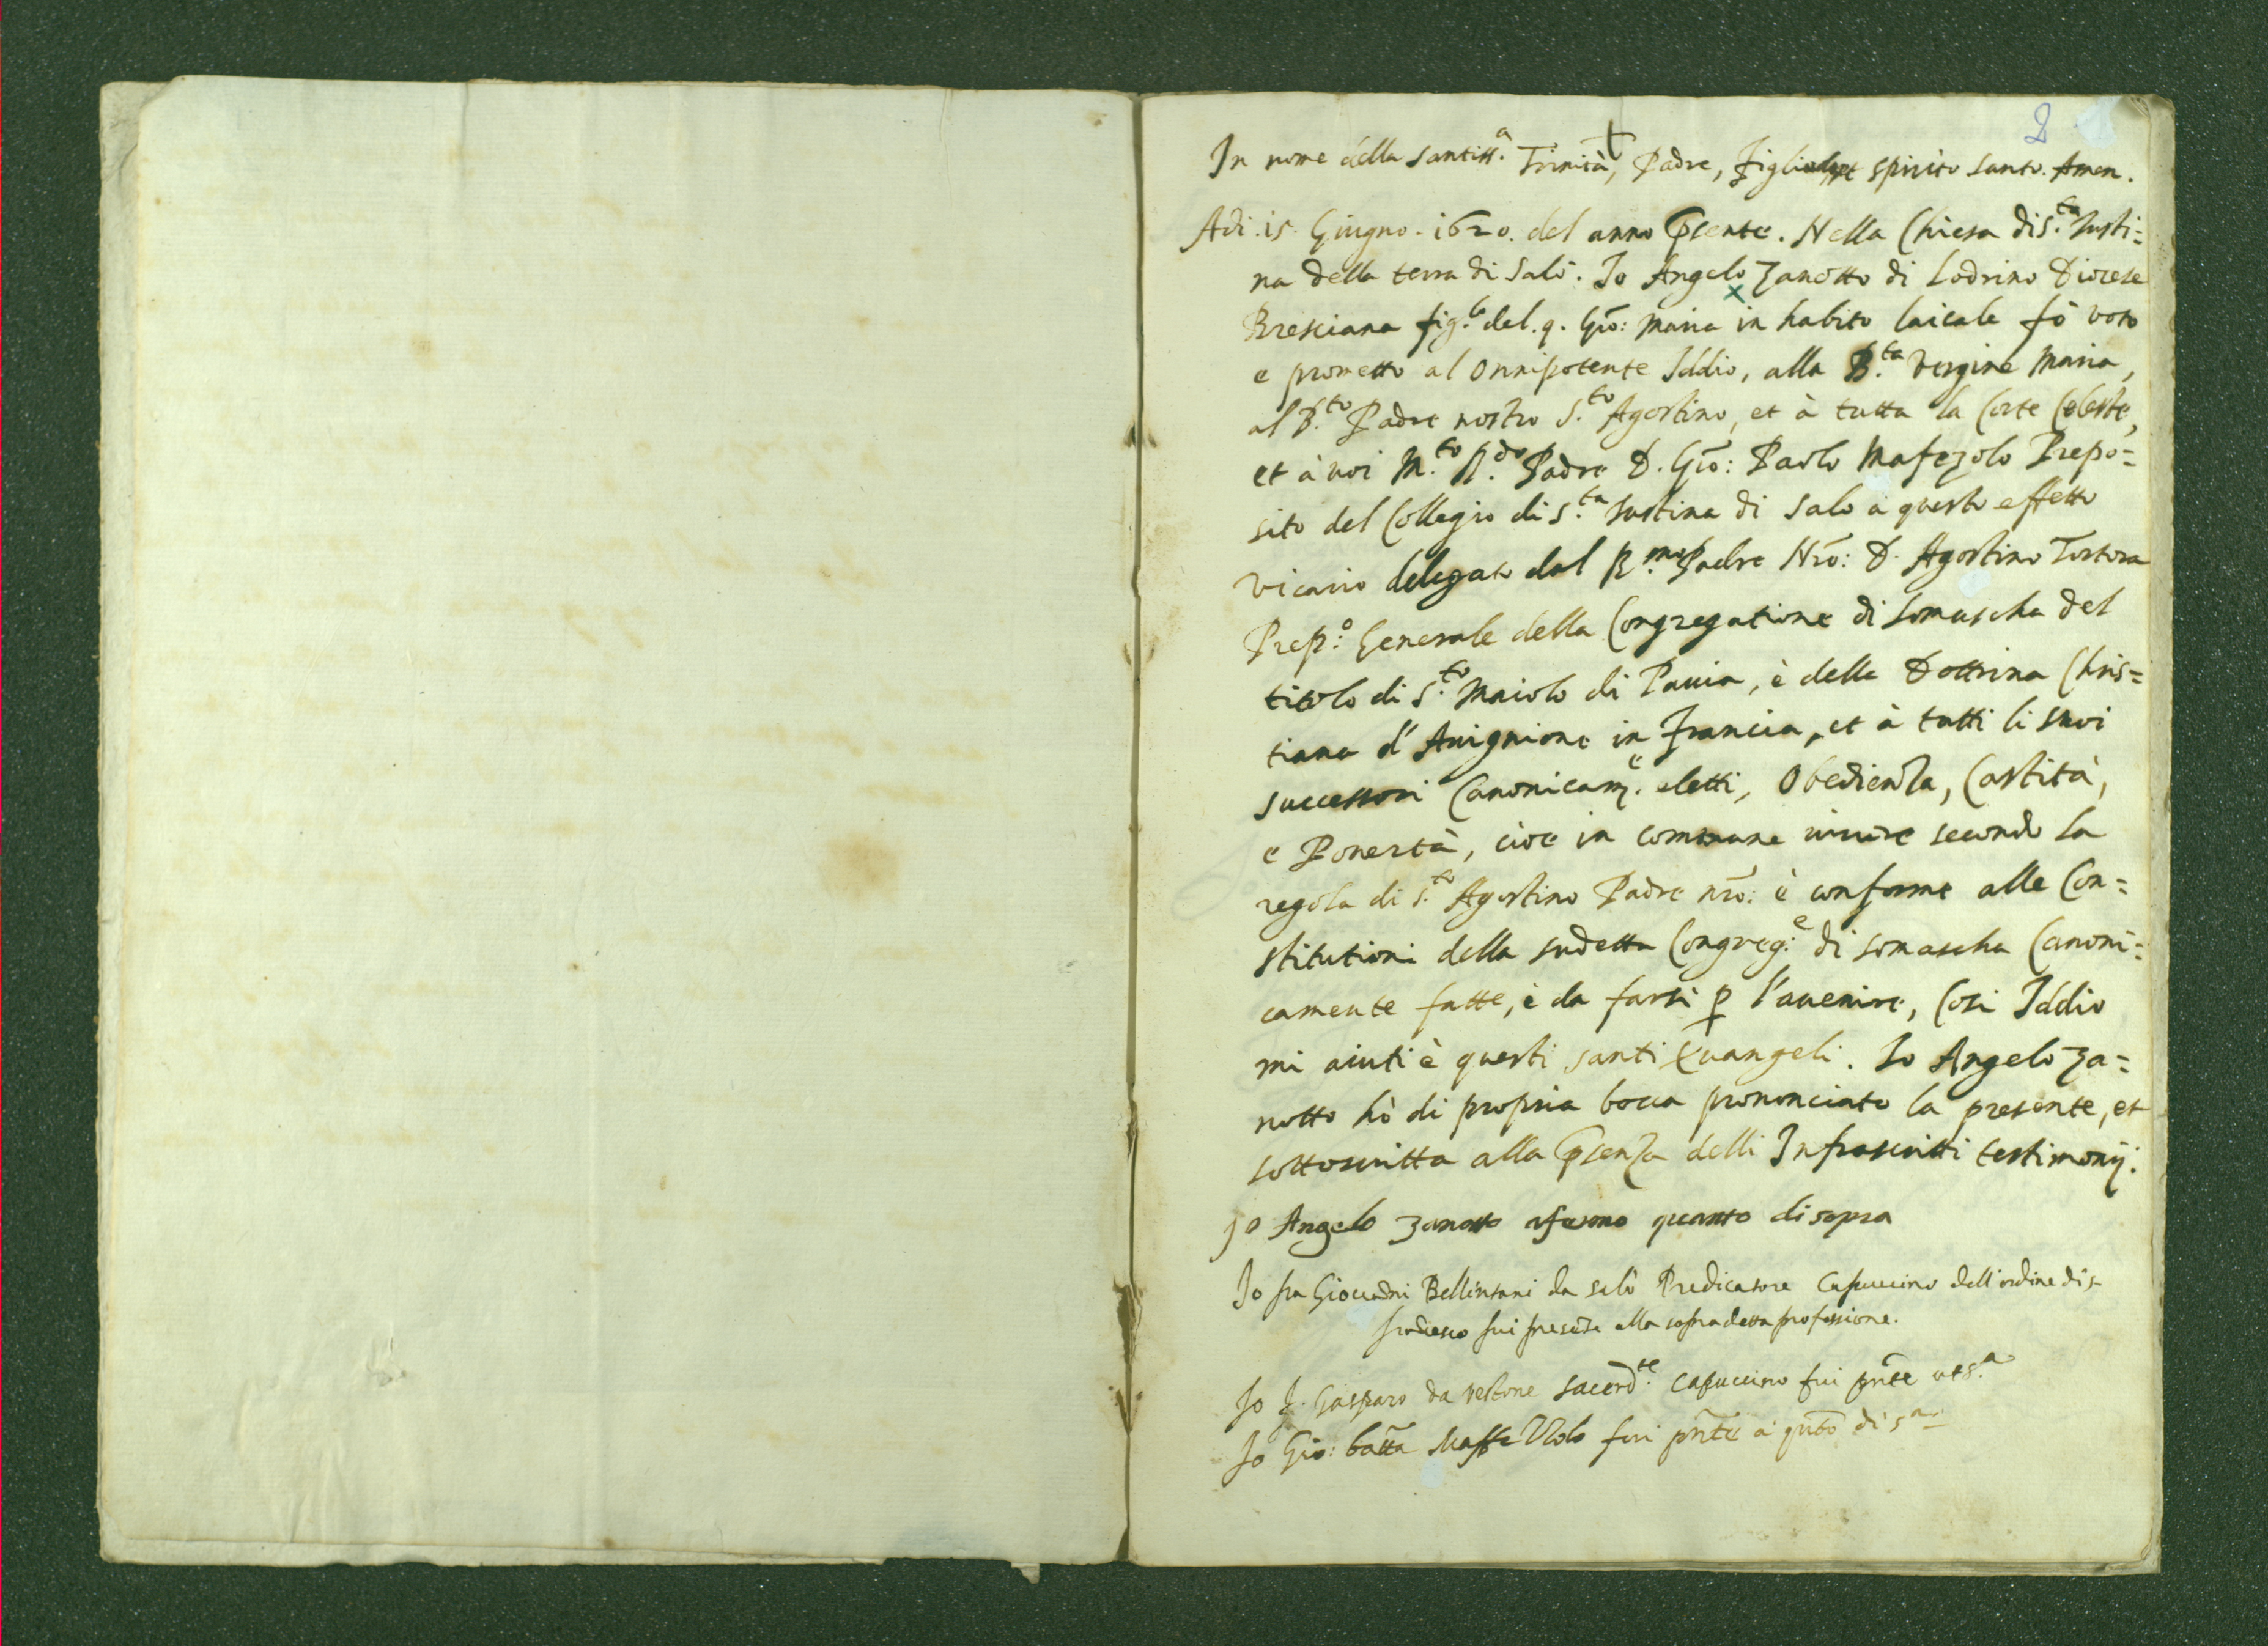 2
†
In nome della santiss.a Trinità, Padre, Figliolo, et spirito santo. Amen.
Adi. 15. Giugno. 1620. del anno p̄sente. Nella Chiesa di S.ta Justi=
na della terra di Salò. Io Angelo Zanotto di Lodrino Diocese
Bresciana fig.lo del. q. Gio: Maria in habito laicale fò voto
e prometto al Onnipotente Iddio, alla B.ta Vergine Maria,
al B.to Padre nostro S.to Agostino, et à tutta la Corte Celeste,
et à voi M.to R.do Padre D. Gio: Paolo Mafezolo Prepo=
sito del Collegio di S.ta Justina di Salo à questo effetto
Vicario delegato dal R.mo Padre Nrō: D. Agostino Tortora
Prep.o Generale della Congregatione di Somascha del
titolo di S.to Maiolo di Pavia, è della Dottrina Chris=
tiana d'Avignione in Francia, et à tutti li suoi
successori Canonicam.e eletti, Obedienza, Castità,
e Povertà, cioe in commune vivere secondo la
regola di S.to Agostino Padre nrō: è conforme alle Con=
stitutioni della sudetta Congreg.e di Somascha Canoni=
camente fatte, è da farsi p̱ l'avenire, Cosi Iddio
mi aiuti è questi santi Evangeli. Io Angelo Za=
notto hò di propria bocca prononciato la presente, et
sottoscritta alla p̄senza delli Infrascritti testimonij.
Jo Angelo Zanotto afermo quanto di sopra
Io fra Giovāni Bellintani da salò Predicatore Capuccino dell'ordine di s.
frācesco fui presēte alla sopradetta professione.
Io F. Gasparo da Vestone sacerd.te capuccino fui pn̄te ut s.a
Io Gio: batt̄a Maffezzolo fui pn̄te a qn̄to di s.a